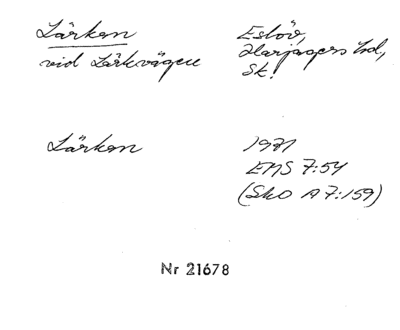 Lärkan
vid Lärkvägen
Eslöv,
Harjagers hd,
Sk.
Lärkan
1971
ENS 7:54
(SkO A7:159)
Nr 21678